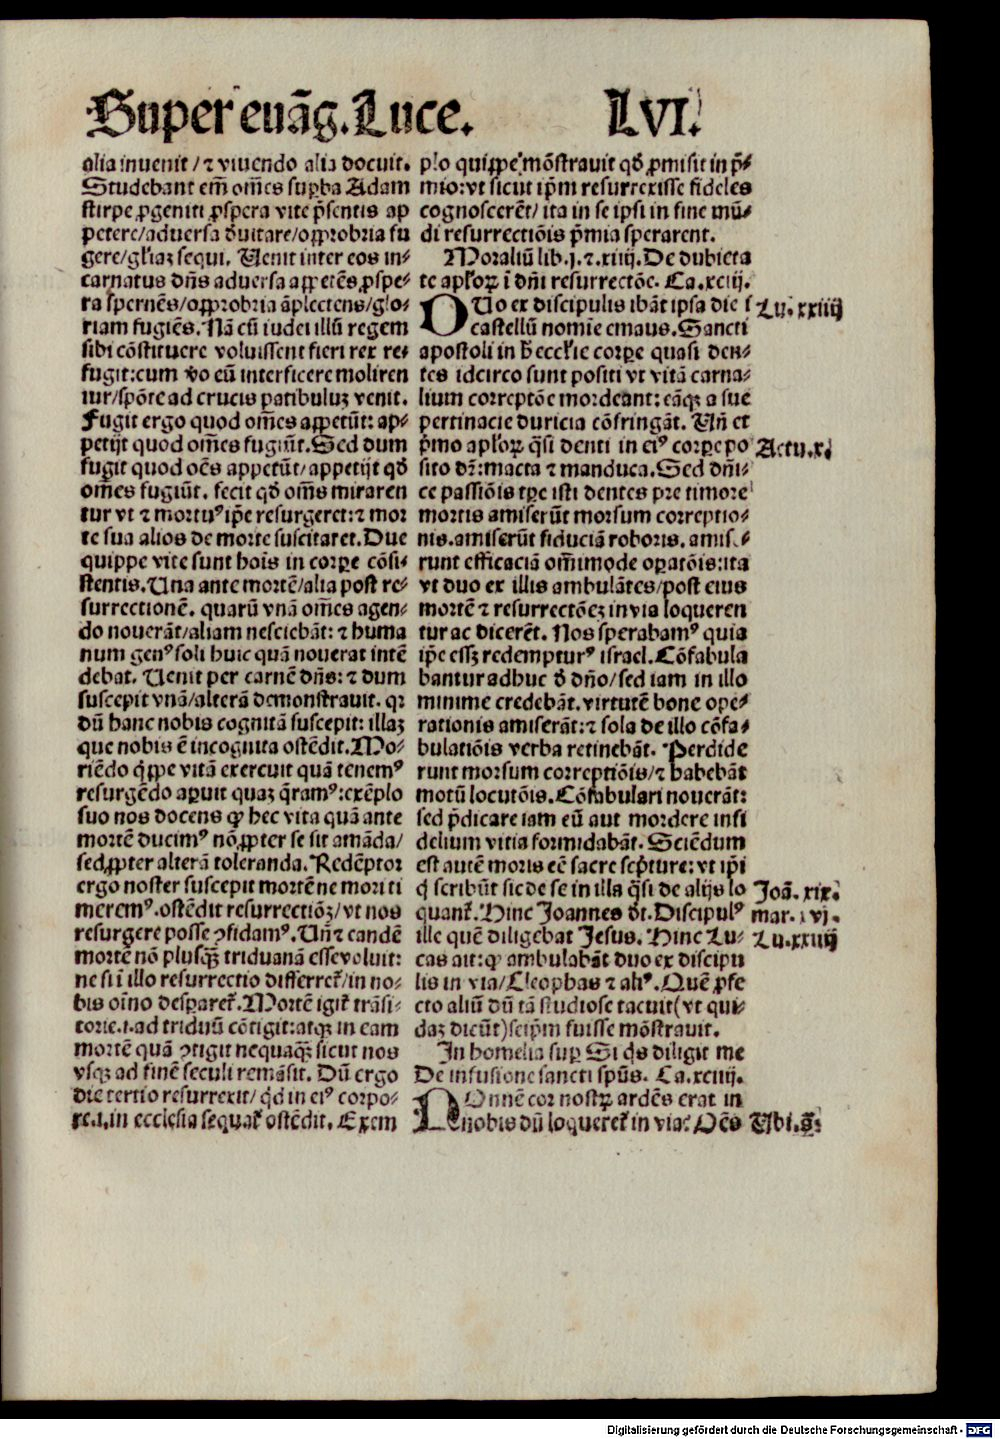 Super euãg. Luce. LVI.
alia inuenit/⁊ viuendo alia docuit.
Studebant em̃ om̃es suꝑba Adam
stirpe ꝓgeniti ꝓspera vite p̃sentis ap
petere/aduersa ð̃uitare/opꝓbria fu
gere/gl̃iaꝫ sequi. Uenit inter eos in-
carnatus dñs aduersa appetẽs ꝓspe-
ra spernẽs/opꝓbria ãplectens/glo-
riam fugiẽs. Nã cũ iudei illũ regem
sibi cõstituere voluissent fieri rex re-
fugit:cum ṽo eũ interficere moliren
tur/spõte ad crucis patibuluꝫ venit.
Fugit ergo quod om̃es appetũt: ap-
petijt quod om̃es fugiũt. Sed dum
fugit quod oẽs appetũt/appetijt qd̃
om̃es fugiũt. fecit qd̃ om̃s miraren
tur vt ⁊ mortuꝰ ip̃e resurgeret:⁊ mor
te sua alios de morte suscitaret. Due
quippe vite sunt hoĩs in corꝑe cõsi-
stentis. Una ante mortẽ/alia post re-
surrectionẽ. quarũ vnã om̃es agen-
do nouerãt/aliam nesciebãt: ⁊ huma
num genꝰ soli huic quã nouerat intẽ
debat. Uenit per carnẽ dñs: ⁊ dum
suscepit vnã/alterã demonstrauit. qꝛ
dũ hanc nobis cognitã suscepit: illaꝫ
que nobis ẽ incognita ostẽdit. Mo-
riẽdo q̃ppe vitã exercuit quã tenemꝰ
resurgẽdo aꝑuit quaꝫ q̃ramꝰ:exẽplo
suo nos docens ꝙ hec vita quã ante
mortẽ ducimꝰ nõ ꝓpter se sit amãda/
sed ꝓpter alterã toleranda. Redẽptor
ergo noster suscepit mortẽ ne mori ti
meremꝰ. ostẽdit resurrectiõꝫ/vt nos
resurgere posse ꝯfidamꝰ. Uñ ⁊ eandẽ
mortẽ nõ plusq̃ꝫ triduanã esse voluit:
ne si ĩ illo resurrectio differret̃/in no-
bis oĩno desparet̃. Mortẽ igit̃ trãsi-
torie.i.ad triduũ cõtigit:atqꝫ in eam
mortẽ quã ꝯtigit nequaq̃ꝫ sicut nos
vsqꝫ ad finẽ seculi remãsit. Dũ ergo
die tertio resurrexit/ qd̃ in eiꝰ corpo-
re.i.in ecclesia sequat̃ ostẽdit. Exem
plo quippe mõstrauit qd̃ ꝓmisit in p̃-
mio:vt sicut ip̃m resurrexisse fideles
cognoscerẽt/ ita in se ipsi in fine mũ-
di resurrectiõis p̃mia sperarent.
Moraliũ lib. j. ⁊. xiiij. De dubieta
te apl̃oꝝ ĩ dñi resurrectõe. Ca. xciij.
DUo ex discipulis ibãt ipsa die ĩ
castellũ nomĩe emaus. Sancti
apostoli in h̃ eccl̃ie corꝑe quasi den-
tes idcirco sunt positi vt vitã carna-
lium correptõe mordeant: eãqꝫ a sue
pertinacie duricia cõfringãt. Uñ et
p̃mo apl̃oꝝ q̃si denti in eiꝰ corꝑe po
sito dr̃:macta ⁊ manduca. Sed dñi-
ce passiõis tꝑe isti dentes pre timore
mortis amiserũt morsum correptio-
nis. amiserũt fiduciã roboris. amise-
runt efficaciã om̃imode oꝑatõis:ita
vt duo ex illis ambulãtes/post eius
mortẽ ⁊ resurrectõeꝫ in via loqueren
tur ac dicerẽt. Nos sperabamꝰ quia
ip̃e essꝫ redempturꝰ israel. Cõfabula
bantur adhuc ð̃ dño/sed iam in illo
minime credebãt. virtutẽ bone ope-
rationis amiserãt:⁊ sola de illo cõfa-
bulatiõis verba retinebãt. Perdide
runt morsum correptiõis/⁊ habebãt
motũ locutõis. Cõfabulari nouerãt:
sed p̃dicare iam eũ aut mordere infi
delium vitia formidabãt. Sciẽdum
est autẽ moris eẽ sacre scp̃ture: vt ip̃i
q̃ scribũt sic de se in illa q̃si de alijs lo
quant̃. Hinc Joannes dt̃. Discipulꝰ
ille quẽ diligebat Jesus. Hinc Lu-
cas ait:ꝙ ambulabãt duo ex discipu
lis in via/Cleophas ⁊ aliꝰ. Quẽ ꝓfe
cto aliũ dũ tã studiose tacuit(vt qui-
daꝫ dicũt)seip̃m fuisse mõstrauit.
In homelia suꝑ Si q̃s diligit me
De infusione sancti spũs. Ca. xciiij.
NOnnẽ cor nostꝝ ardẽs erat in
nobis dũ loqueret̃ in via? Oẽs
Lu. xxiiij
Actu.x.
Joã. xix.
mar. xvj.
Lu. xxiiij
Ubi.s̃.
Digitalisierung gefördert durch die Deutsche Forschungsgemeinschaft - DFG